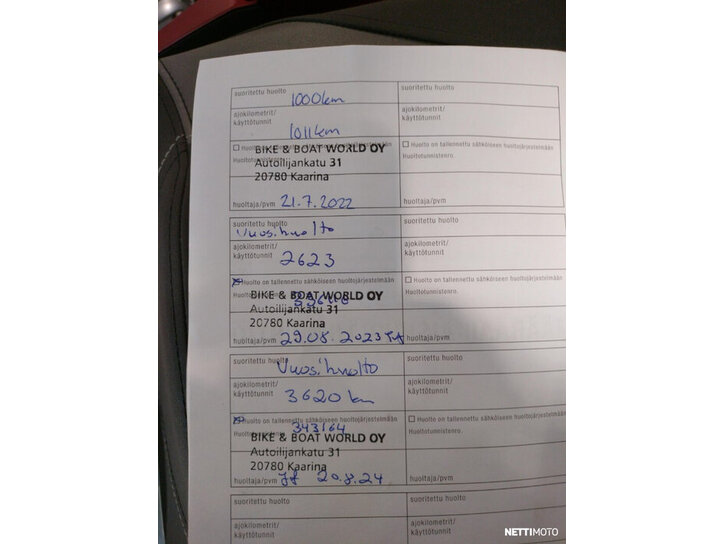 suoritettu huolto 1000km
suoritettu huolto
ajokilometrit/
käyttötunnit 1011km
ajokilometrit/
käyttötunnit
Huolto on tallennettu sähköiseen huoltojärjestelmään
Huoltotunnistenro.
BIKE & BOAT WORLD OY
Autoilijankatu 31
20780 Kaarina
Huolto on tallennettu sähköiseen huoltojärjestelmään
Huoltotunnistenro.
huoltaja/pvm 21.7.2022
huoltaja/pvm
suoritettu huolto
Vuosihuolto
suoritettu huolto
ajokilometrit/
käyttötunnit 2623
ajokilometrit/
käyttötunnit
Huolto on tallennettu sähköiseen huoltojärjestelmään
Huoltotunnistenro.
BIKE & BOAT WORLD OY
Autoilijankatu 31
20780 Kaarina
Huolto on tallennettu sähköiseen huoltojärjestelmään
Huoltotunnistenro.
huoltaja/pvm 29.08.2023
huoltaja/pvm
suoritettu huolto Vuosihuolto
suoritettu huolto
ajokilometrit/
käyttötunnit 3620 km
ajokilometrit/
käyttötunnit
Huolto on tallennettu sähköiseen huoltojärjestelmään
Huoltotunnistenro. 343164
BIKE & BOAT WORLD OY
Autoilijankatu 31
20780 Kaarina
Huolto on tallennettu sähköiseen huoltojärjestelmään
Huoltotunnistenro.
huoltaja/pvm 20.8.24
huoltaja/pvm
suoritettu huolto
suoritettu huolto
ajokilometrit/
käyttötunnit
ajokilometrit/
käyttötunnit
NETTIMOTO